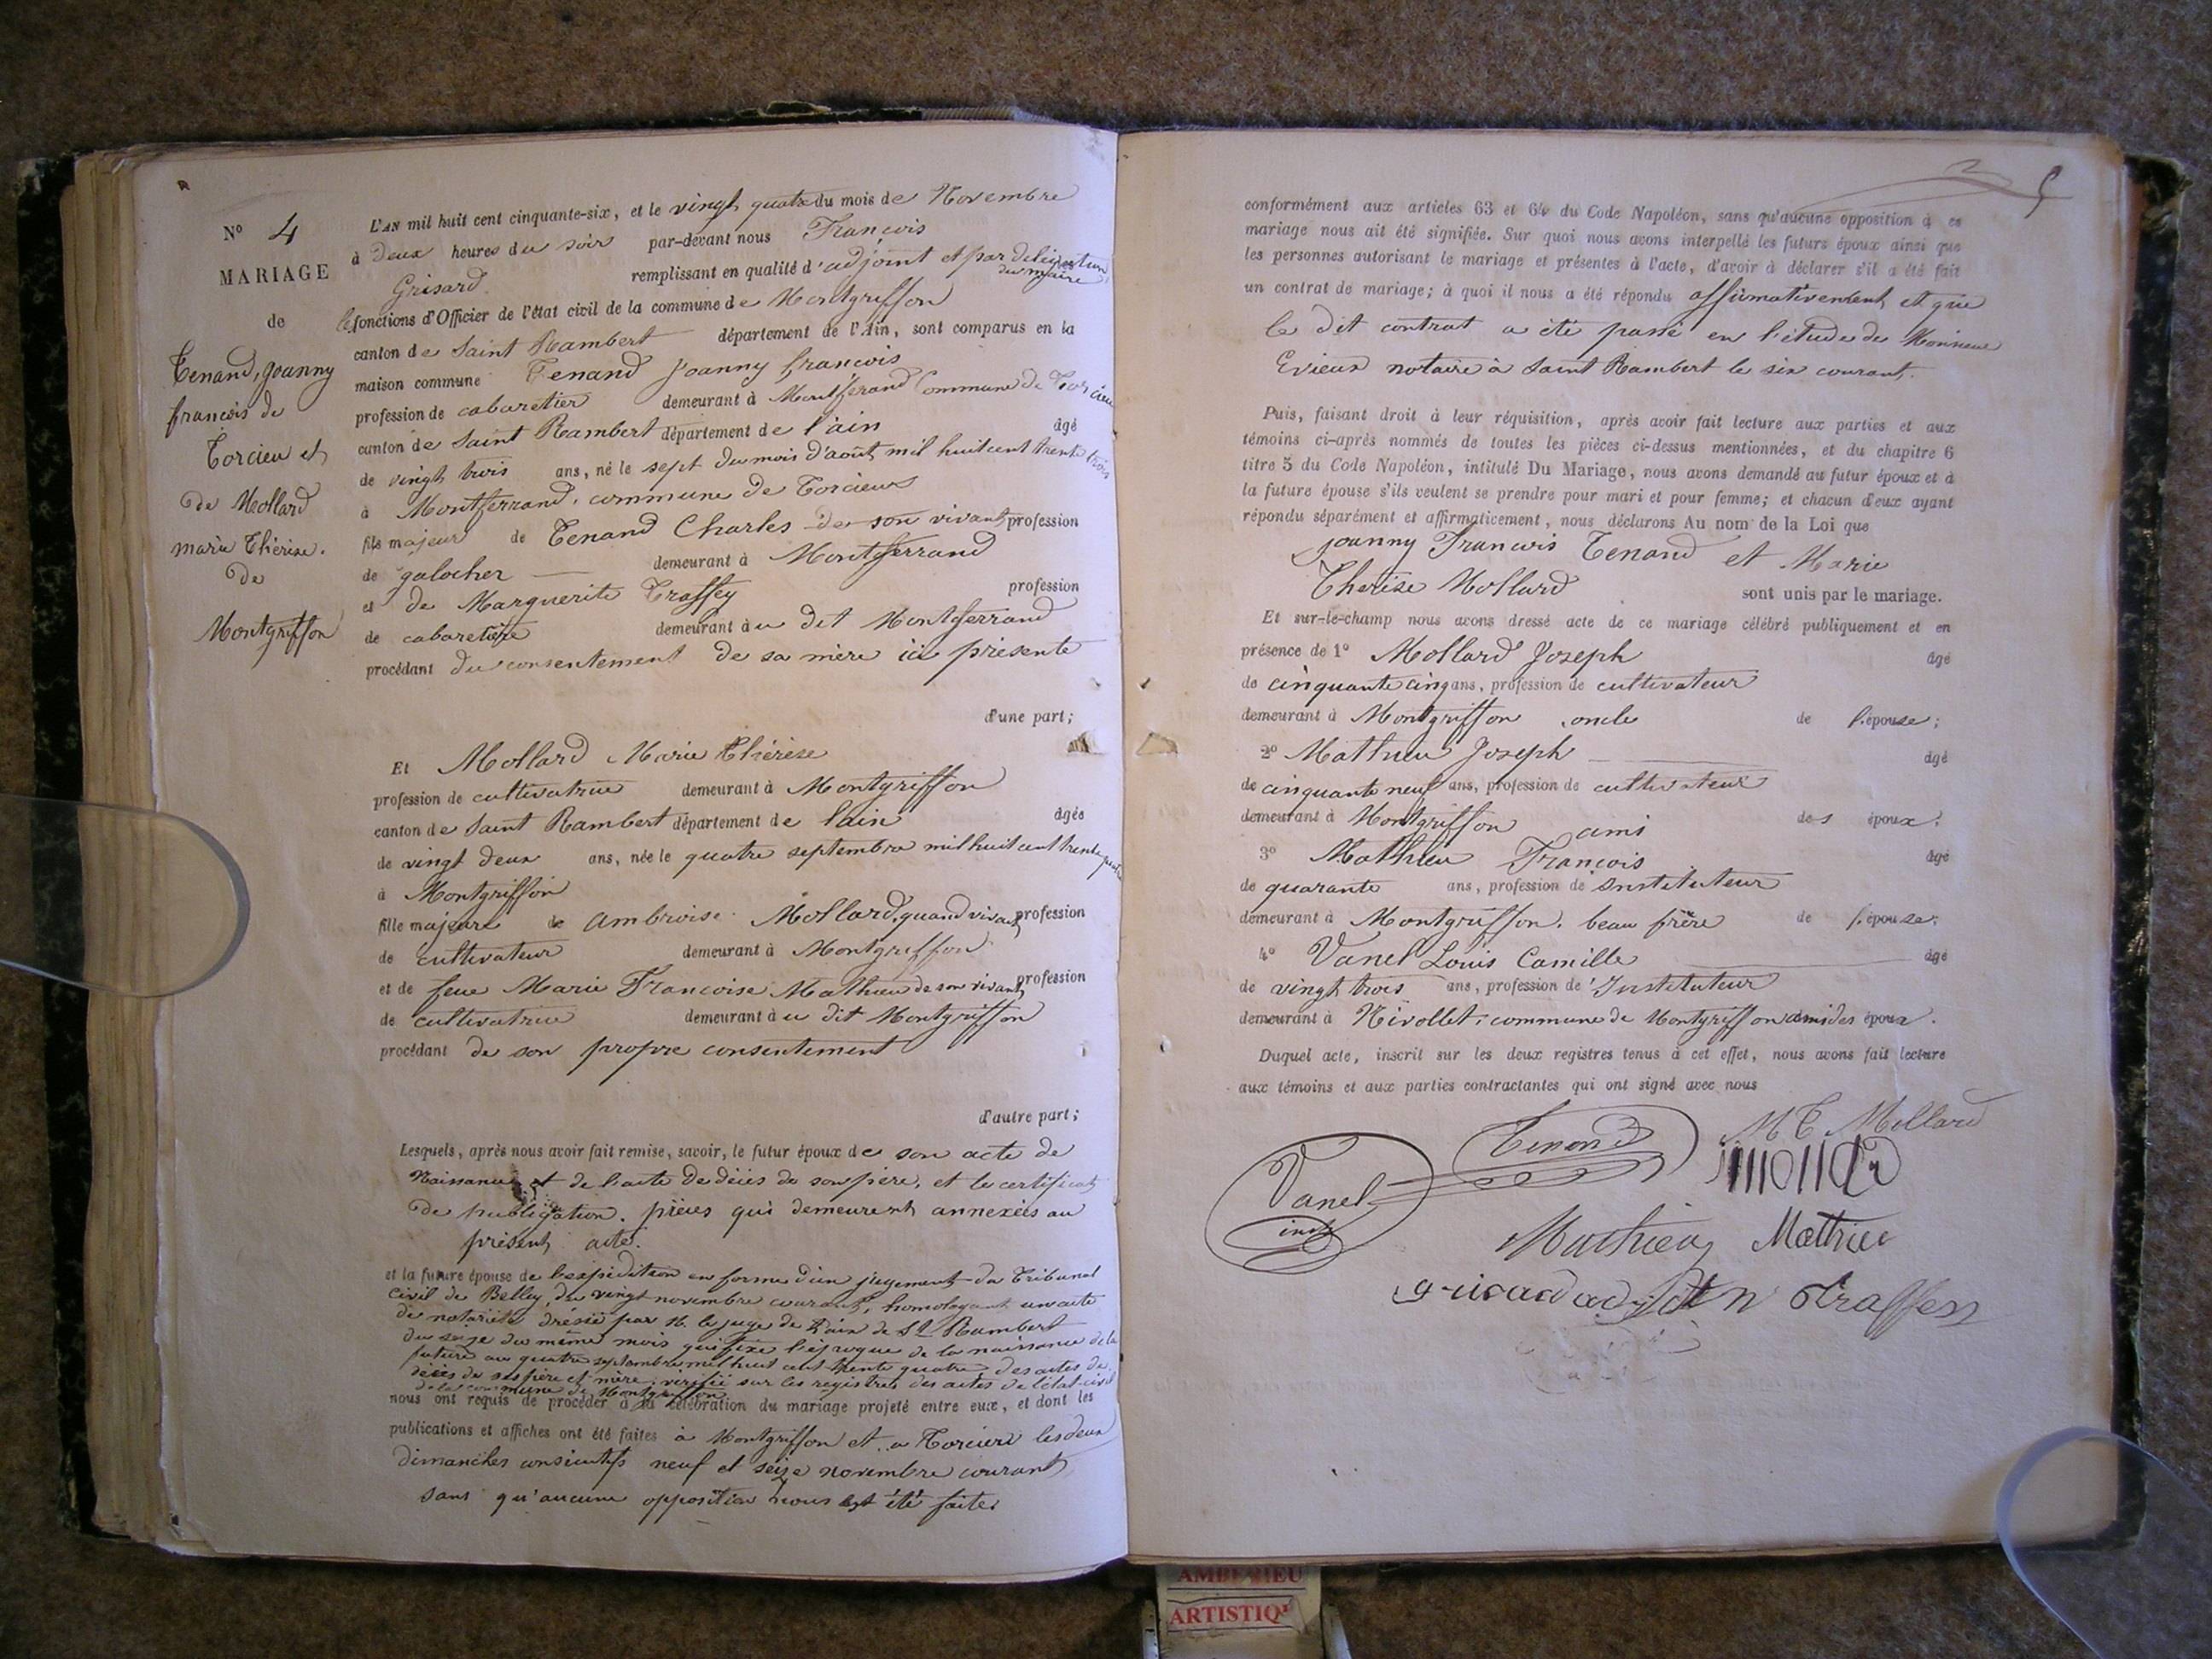 N° 4
MARIAGE
de
Tenand, Joanny
françois de
Torcieu et
de Mollard
marie Thérèse.
de
Montgriffon
L'AN mil huit cent cinquante-six, et le vingt quatre du mois de Novembre
à Deux heures du soir par-devant nous François
Grisard remplissant en qualité d'adjoint et par délégation du maire
les fonctions d'Officier de l'état civil de la commune de Montgriffon
canton de Saint Rambert département de l'Ain, sont comparus en la
maison commune Tenand Joanny françois
profession de cabaretier demeurant à Montferrand Commune de Torcieu
canton de Saint Rambert département de l'ain âgé
de vingt trois ans, né le sept du mois d'août mil huit cent trente trois
à Montferrand, commune de Torcieux
fils majeur de Tenand Charles de son vivant profession
de galocher demeurant à Montferrand
et de Marguerite Traffey profession
de cabaretière demeurant au dit Montferrand
procédant du consentement de sa mère ici présente
d'une part;
Et Mollard Marie Thérèse
profession de cultivatrice demeurant à Montgriffon
canton de Saint Rambert département de l'ain âgée
de vingt deux ans, née le quatre septembre mil huit cent trente quatre
à Montgriffon
fille majeure de ambroise Mollard, quand vivant profession
de cultivateur demeurant à Montgriffon
et de feue Marie Francoise Mathieu de son vivant profession
de cultivatrice demeurant au dit Montgriffon
procédant de son propre consentement
d'autre part;
Lesquels, après nous avoir fait remise, savoir, le futur époux de son acte de
Naissance et de l'acte de décès de son père, et le certificat
de publication. pièces qui demeurent annexées au
présent acte.
et la future épouse de l'expédition en forme d'un jugement du Tribunal
civil de Belley, du vingt novembre courant, homologuant un acte
de notoriété dressé par M. le juge de Paix de St Rambert
du seize du même mois qui fixe l'époque de la naissance de la
future au quatre septembre mil huit cent trente quatre des actes de
décès de ses père et mère, vérifié sur les registres des actes de l'état-civil
de la commune de Montgriffon
nous ont requis de procéder à la célébration du mariage projeté entre eux, et dont les
publications et affiches ont été faites à Montgriffon et à Torcieu les deux
dimanches consécutifs neuf et seize novembre courant
sans qu'aucune opposition nous ait été faite
5
conformément aux articles 63 et 64 du Code Napoléon, sans qu'aucune opposition à ce
mariage nous ait été signifiée. Sur quoi nous avons interpellé les futurs époux ainsi que
les personnes autorisant le mariage et présentes à l'acte, d'avoir à déclarer s'il a été fait
un contrat de mariage; à quoi il nous a été répondu affirmativement et que
le dit contrat a été passé en l'étude de Monsieur
Evieux notaire à Saint Rambert le six courant.
Puis, faisant droit à leur réquisition, après avoir fait lecture aux parties et aux
témoins ci-après nommés de toutes les pièces ci-dessus mentionnées, et du chapitre 6
titre 5 du Code Napoléon, intitulé Du Mariage, nous avons demandé au futur époux et à
la future épouse s'ils veulent se prendre pour mari et pour femme; et chacun d'eux ayant
répondu séparément et affirmativement, nous déclarons Au nom de la Loi que
Joanny Francois Tenand et Marie
Thérèse Mollard sont unis par le mariage.
Et sur-le-champ nous avons dressé acte de ce mariage célébré publiquement et en
présence de 1° Mollard Joseph âgé
de cinquante cinq ans, profession de cultivateur
demeurant à Montgriffon, oncle de l'épouse;
2° Mathieu Joseph âgé
de cinquante neuf ans, profession de cultivateur
demeurant à Montgriffon ami des époux;
3° Mathieu François âgé
de quarante ans, profession de instituteur
demeurant à Montgriffon, beau frère de l'épouse;
4° Vanel Louis Camille âgé
de vingt trois ans, profession de Instituteur
demeurant à Nivollet, commune de Montgriffon ami des époux.
Duquel acte, inscrit sur les deux registres tenus à cet effet, nous avons fait lecture
aux témoins et aux parties contractantes qui ont signé avec nous
Tenand M T Mollard
Vanel
inst
Mathieu Mathieu
grisard adjoint Traffey
AMBERIEU
ARTISTIQ